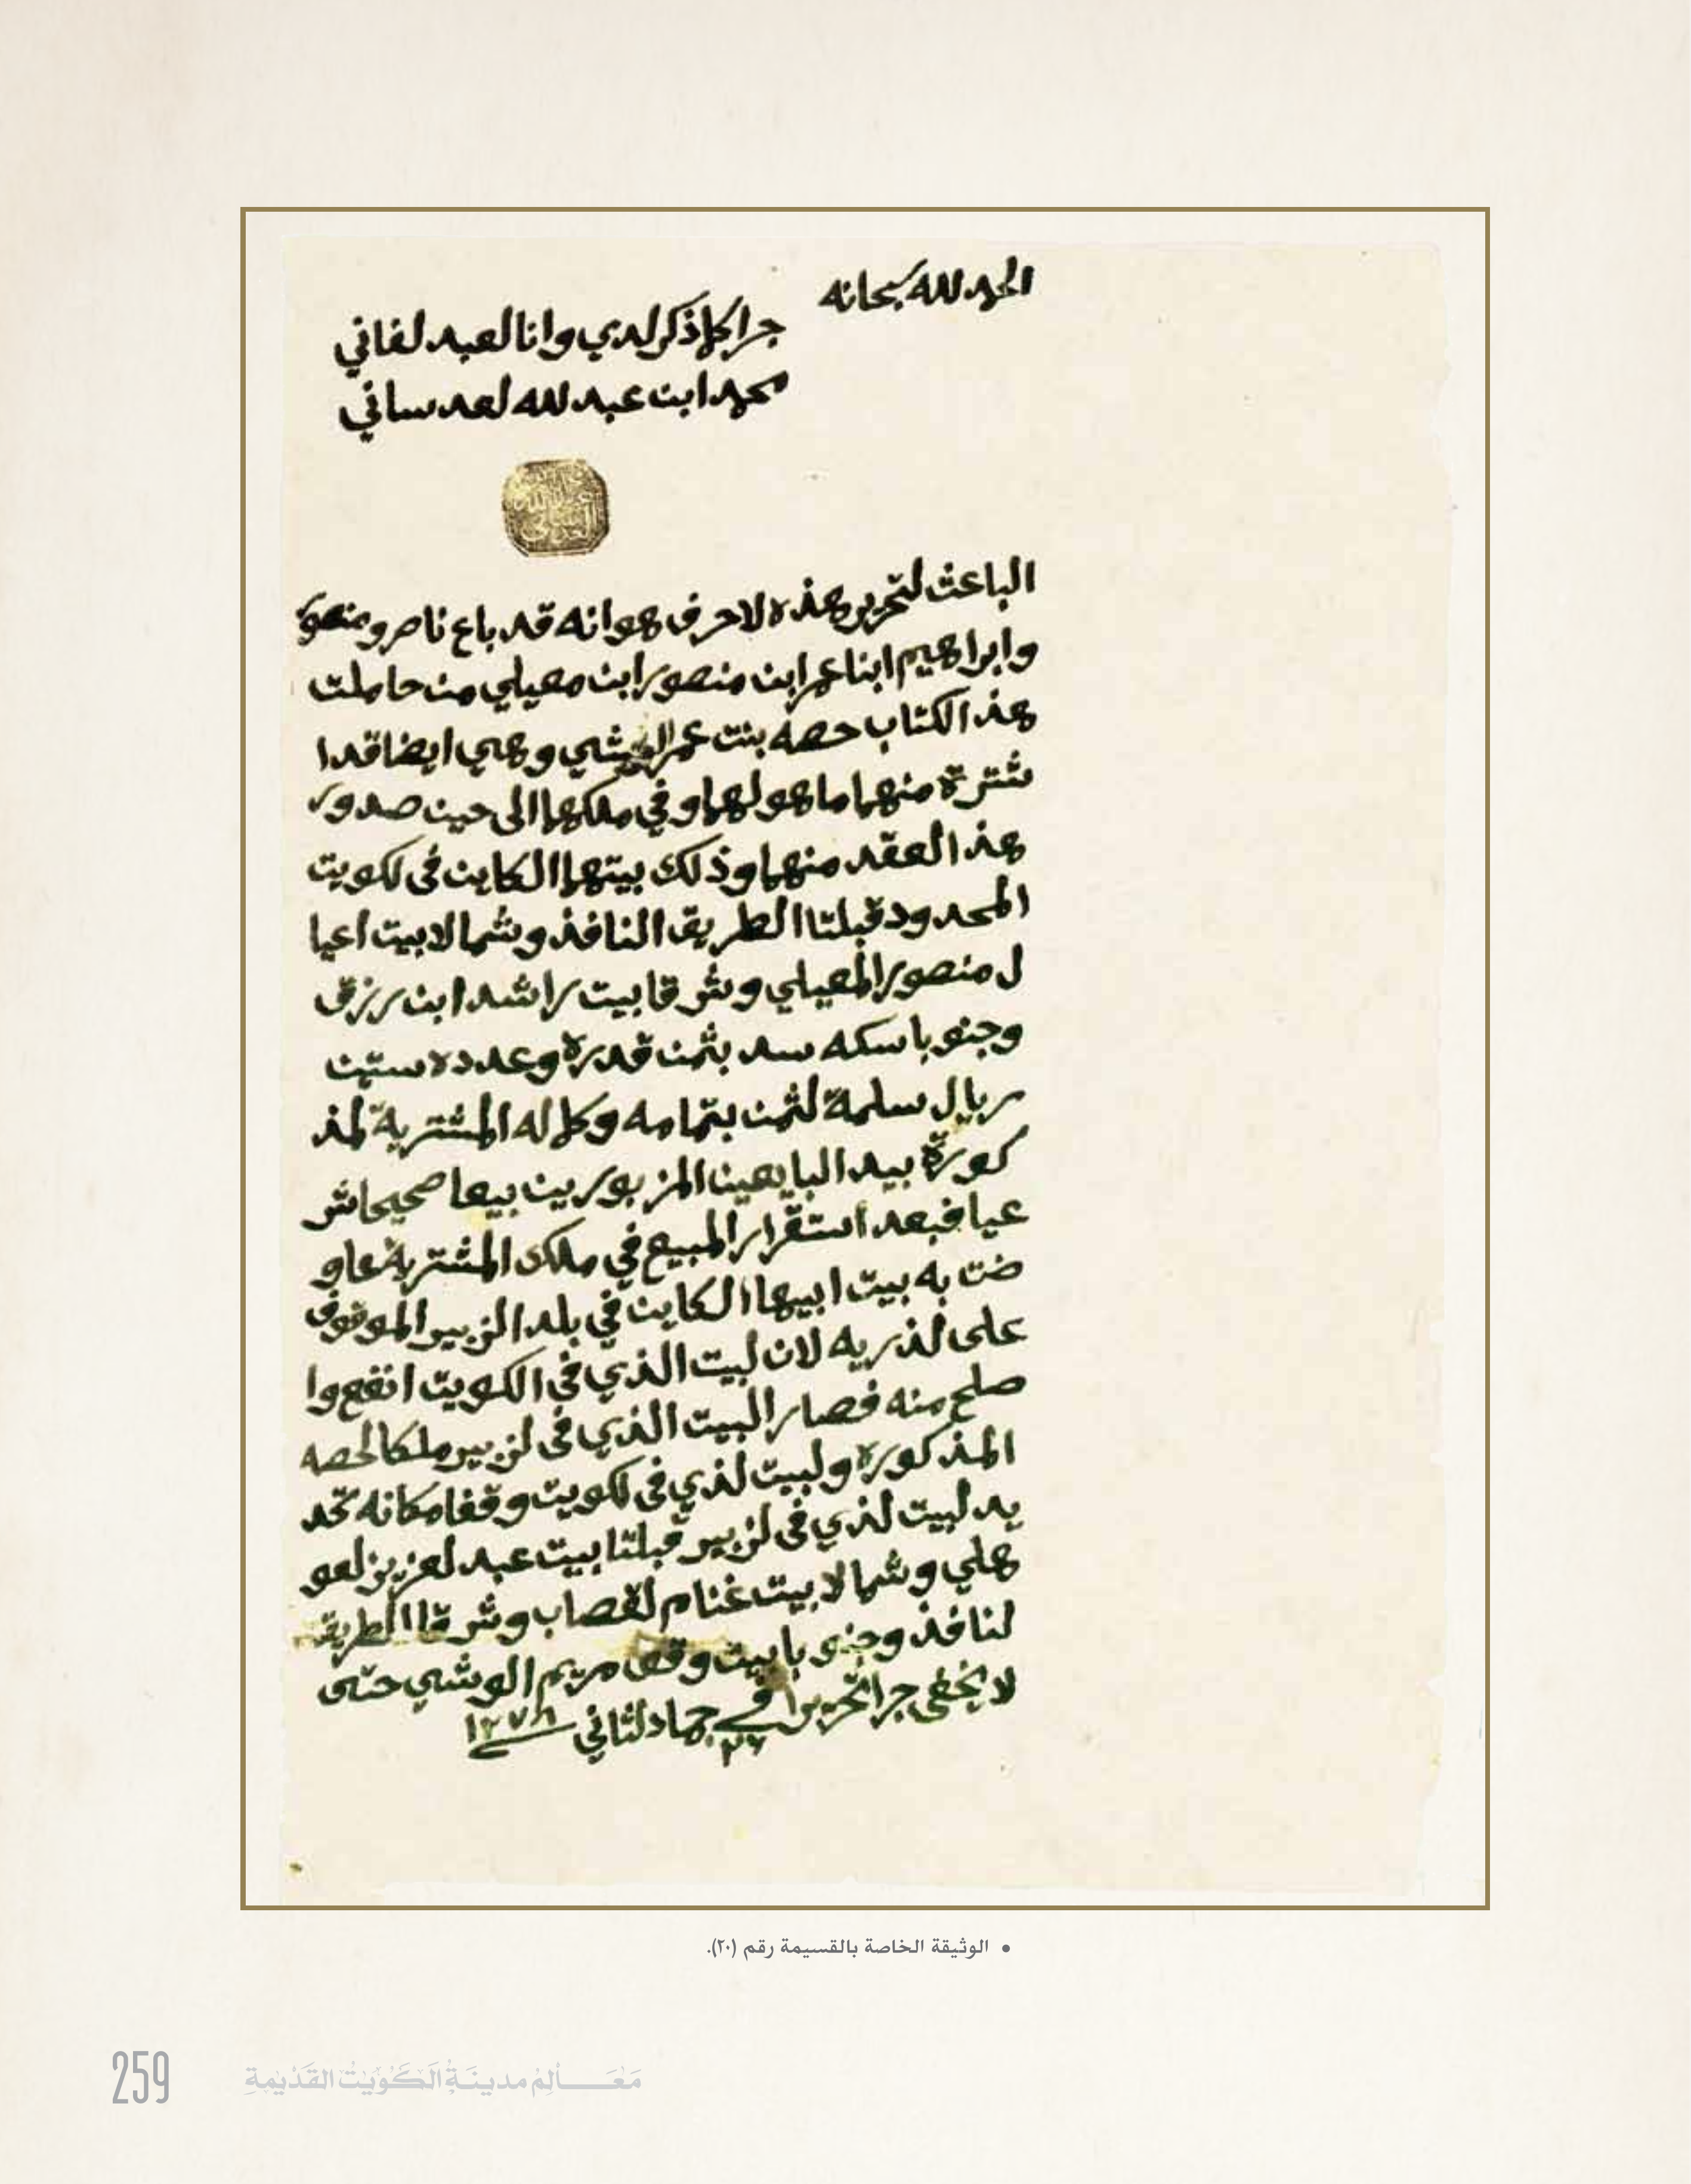 الحمد لله سبحانه
جرا كلما ذكر لدي وانا لعبد لفاني
محمد ابن عبد لله لعدساني
الباعث لتحرير هذه الاحرف هو انه قد باع ناصر ومنصور
وابراهيم ابنا عمر ابن منصور ابن معيلي من حاملت
هذ الكتاب حصه بنت عمر الوشي وهي ايضا قد ا
شترة منهما ما هو لهما وفي ملكهما الى حين صدور
هذ العقد منهما وذلك بيتهما الكاين في لكويت
المحدود قبلتا الطريق النافذ وشمالا بيت اعيا
ل منصور المعيلي وشرقا بيت راشد ابن رزق
وجنوبا سكه سد بثمن قدرة وعدده ستين
ريال سلمة لثمن بتمامه وكماله المشترية لمذ
كورة بيد البايعين المزبورين بيعا صحيحا شر
عيا فبعد استقرار المبيع في ملك المشترية عاو
ضت به بيت ابيها الكاين في بلد الزبير الموقوف
على لذريه لان لبيت الذي في الكويت انفع وا
صلح منه فصار البيت الذي في لزبير ملكا لحصه
المذكورة ولبيت لذي في لكويت وقفا مكانه تحد
يد لبيت لذي في لزبير قبلتا بيت عبد لعزيز لعو
هلي وشمالا بيت غنام لقصاب وشرقا الطريق
لنافذ وجنوبا بيت وقف مريم الوشي حتى
لا يخفى جرا تحريرا في ٢٧ جماد لثاني ١٢٧٨
• الوثيقة الخاصة بالقسيمة رقم (٢٠).
259 مَعَالِم مدينَة الكُوَيْت القَدِيْمةِ